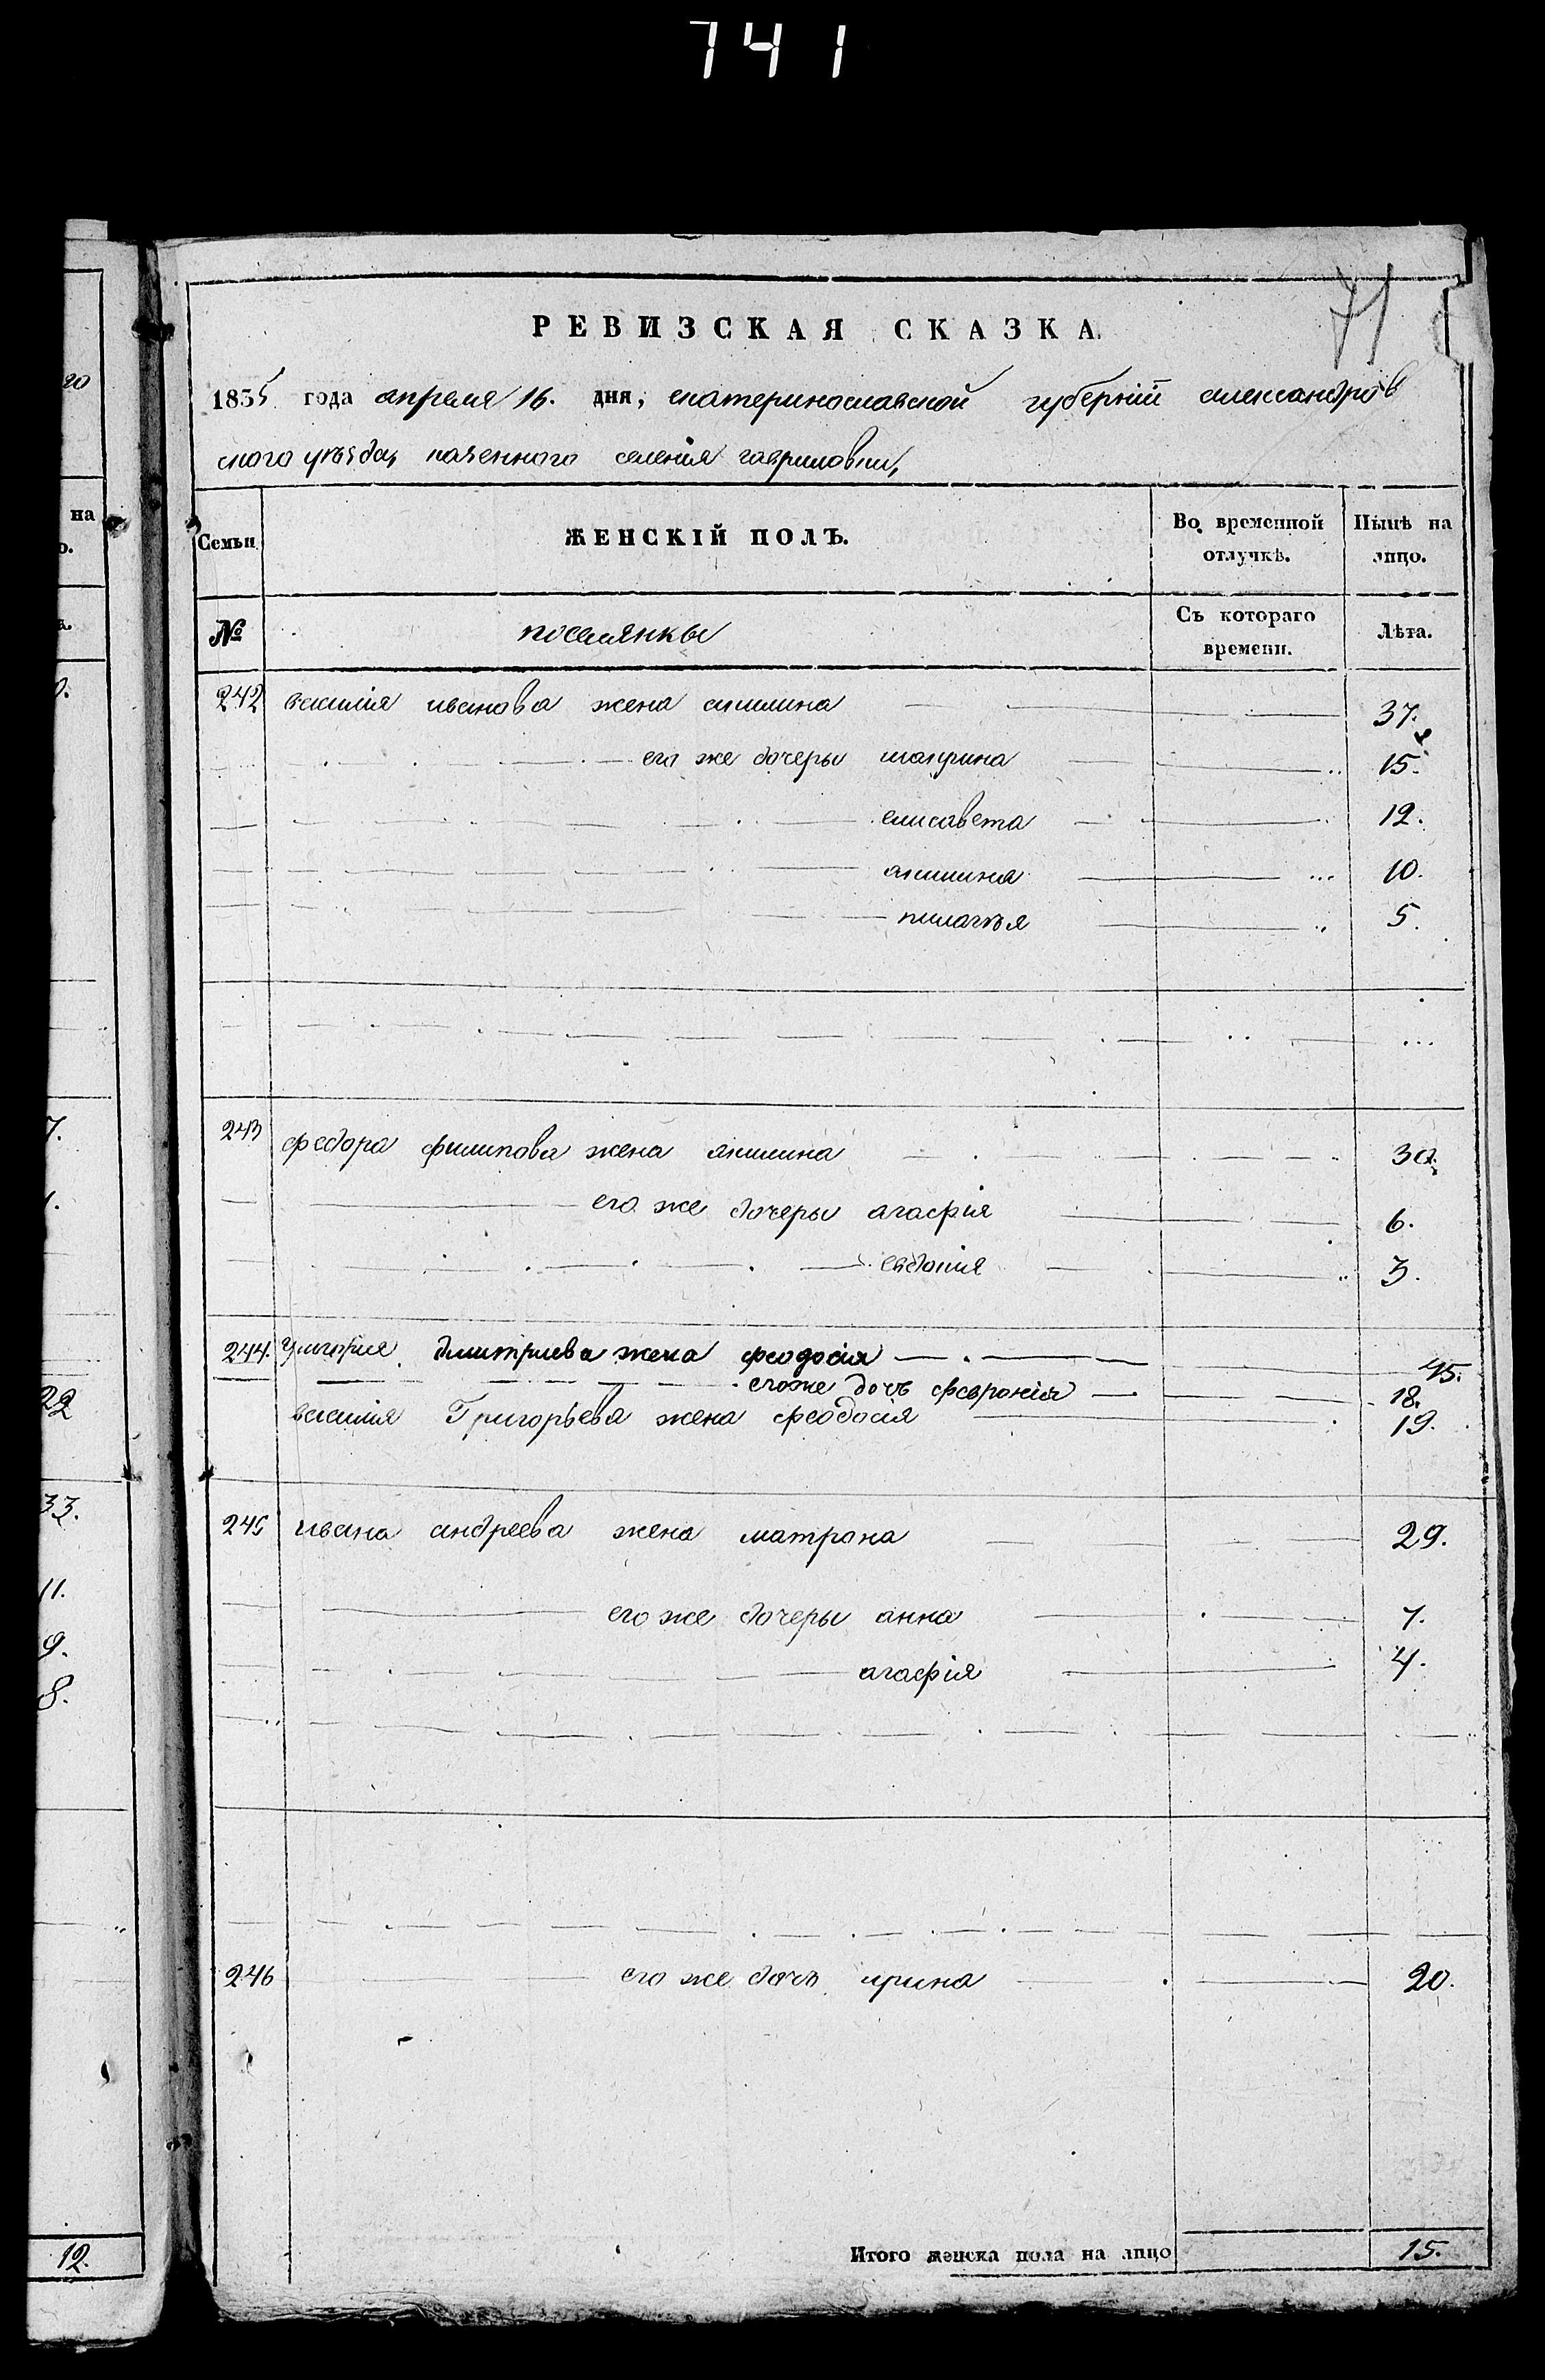 741
71
РЕВИЗСКАЯ СКАЗКА.
1835 года апреля 16. дня, екатеринославской губернiи александров
ского уѣзда, казенного селенiя гавриловки,
Семьи ЖЕНСКIЙ ПОЛЪ. Во временной отлучкѣ. Нынѣ на лицо.
№ поселянкы Съ котораго времени. Лѣта.
242 василiя иванова жена акилина 37.
его же дочеры макрина 15.
елисавета 12.
акилина 10.
пилагѣя 5.
243 федора филипова жена акилина 30.
его же дочеры агафiя 6.
евдокiя 3.
244. григория дмитриева жена феодосiя 45.
егоже дочъ феврониiя 18.
василiя Григорьева жена феодосiя 19.
245 ивана андреева жена матрона 29.
его же дочеры анна 7.
агафiя 4.
246 его же дочъ ирина 20.
Итого женска пола на лицо 15.
го
на
о.
7.
1.
22
33.
11.
9.
8.
12.